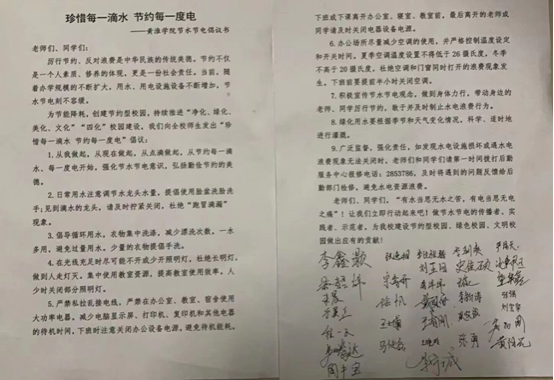 珍惜每一滴水 节约每一度电
——黄淮学院节水节电倡议书
老师们、同学们：
厉行节约、反对浪费是中华民族的传统美德。节约不仅
是一个人素质、修养的体现，更是一份社会责任。当前，随
着办学规模的不断扩大，用水、用电设施设备不断增加，节
水节电刻不容缓。
为节能降耗，创建节约型校园，持续推进“净化、绿化、
美化、文化”“四化”校园建设，我们向全校师生发出“珍
惜每一滴水 节约每一度电”倡议：
1.从我做起，从现在做起，从点滴做起，从节约每一滴
水、每一度电开始，强化节水节电意识，弘扬勤俭节约的美
德。
2.日常用水注意调节水龙头水量，提倡使用脸盆洗脸洗
手；见到滴水的龙头，请及时拧紧关闭，杜绝“跑冒滴漏”
现象。
3.倡导循环用水。衣物集中洗涤，减少漂洗次数，一水
多用，避免过量用水。少量的衣物提倡手洗。
4.在光线充足时尽可能不开或少开照明灯。杜绝长明灯，
做到人走灯灭。集中使用教室资源，提高教室使用效率，人
少时关闭部分照明灯。
5.严禁私拉乱接电线，严禁在办公室、教室、宿舍使用
大功率电器。减少电脑显示屏、打印机、复印机和其他电器
的待机时间，下班时注意关闭办公设备电源，避免待机能耗。
下班或下课离开办公室、寝室、教室前，最后离开的老师或
同学请及时关闭电器设备电源。
6.办公场所尽量减少空调的使用，并严格控制温度设定
和开关时间。夏季空调温度设置不得低于 26 摄氏度，冬季
不高于 20 摄氏度。杜绝空调和门窗同时打开的浪费现象发
生。下班前要提前半小时关闭空调。
7.积极宣传节水节电观念，做到身体力行，带动身边的
老师、同学厉行节约，敢于并及时制止水电浪费行为。
8.绿化用水要根据季节和天气变化情况，科学、适时地
进行灌溉。
9.广泛监督，强化责任。如发现水电设施损坏或遇水电
浪费现象无法关闭时，老师们和同学们请第一时间拨打后勤
服务中心报修电话：2853786，及时将遇到的问题反馈给后
勤部门检修，避免水电资源浪费。
老师们、同学们，“有水当思无水之苦，有电当思无电
之痛”！让我们立即行动起来吧！做节水节电的传播者、实
践者、示范者，为我校建设节约型校园、绿色校园、文明校
园做出应有的贡献！